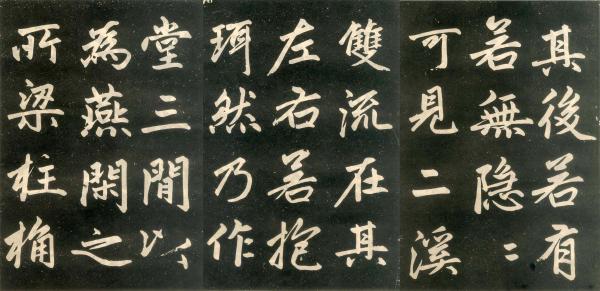 其後若有
若無隐〻
可見二溪
雙流在其
左右若抱
珥然乃作
堂三間以
為燕閑之
所梁柱桷